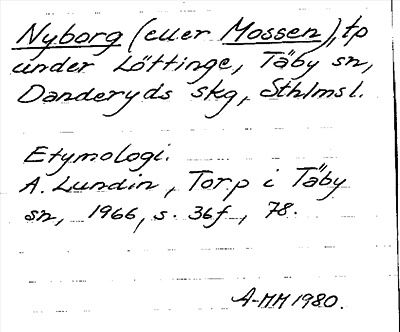 Nyborg (eller Mossen), tp
under Löttinge, Täby sn,
Danderyds skg, Sthlms l.
Etymologi.
A. Lundin, Torp i Täby
sn, 1966, s. 36f, 78.
A-MM 1980.